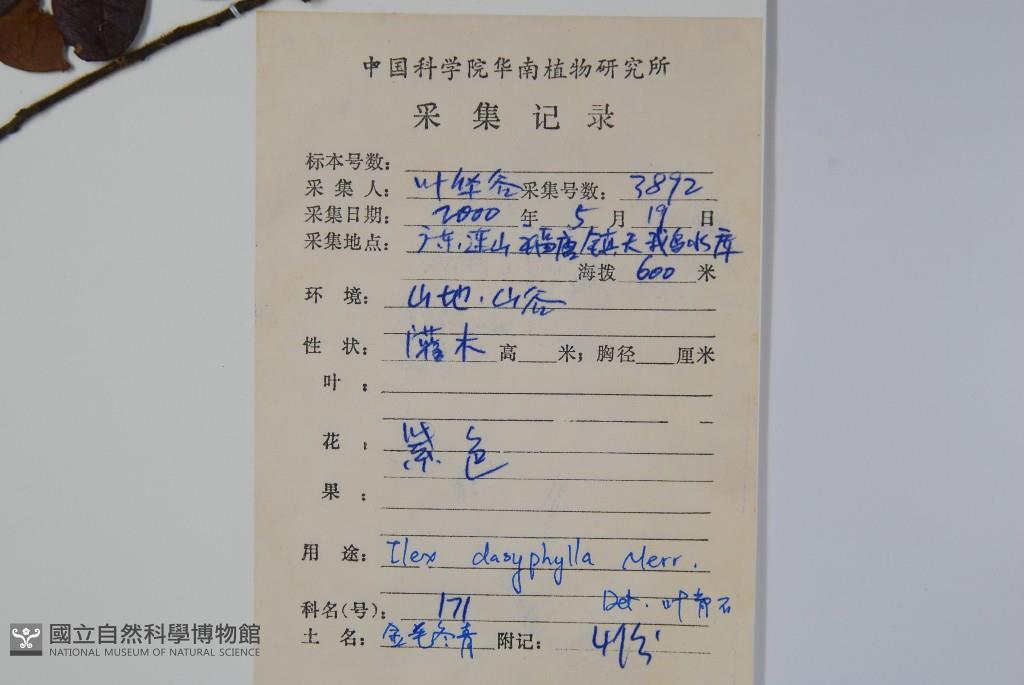 中国科学院华南植物研究所
采集记录
标本号数：
采集人：叶华谷 采集号数：3892
采集日期：2000年5月19日
采集地点：广东，连山 福唐镇天鹅水库
海拨 600 米
环境：山地．山谷
性状：灌木 高 米；胸径 厘米
叶：
花：紫色
果：
用途：Ilex dasyphylla Merr.
Det. 叶
科名(号)：171
土名：金毛冬青 附记：4份
國立自然科學博物館
NATIONAL MUSEUM OF NATURAL SCIENCE